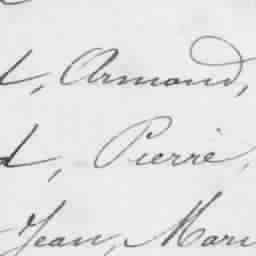 t, Armand,
d, Pierre,
Jean, Mari